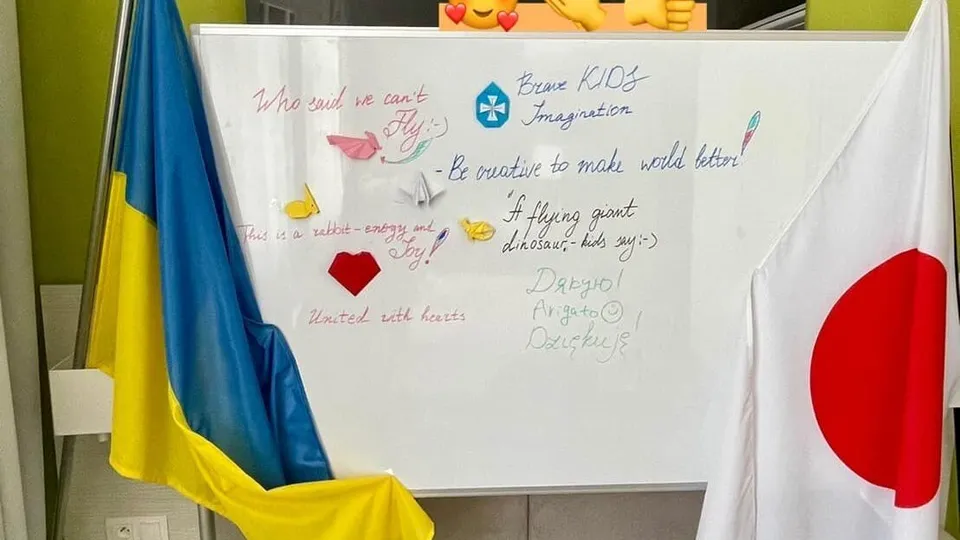 Who said we can't
Fly :-)
Brave KIDS
Imagination
- Be creative to make world better!
"A flying giant
dinosaur,- kids say :-)
This is a rabbit - energy and
Joy!
United with hearts
Дякую!
Arigato
Dziękuję!